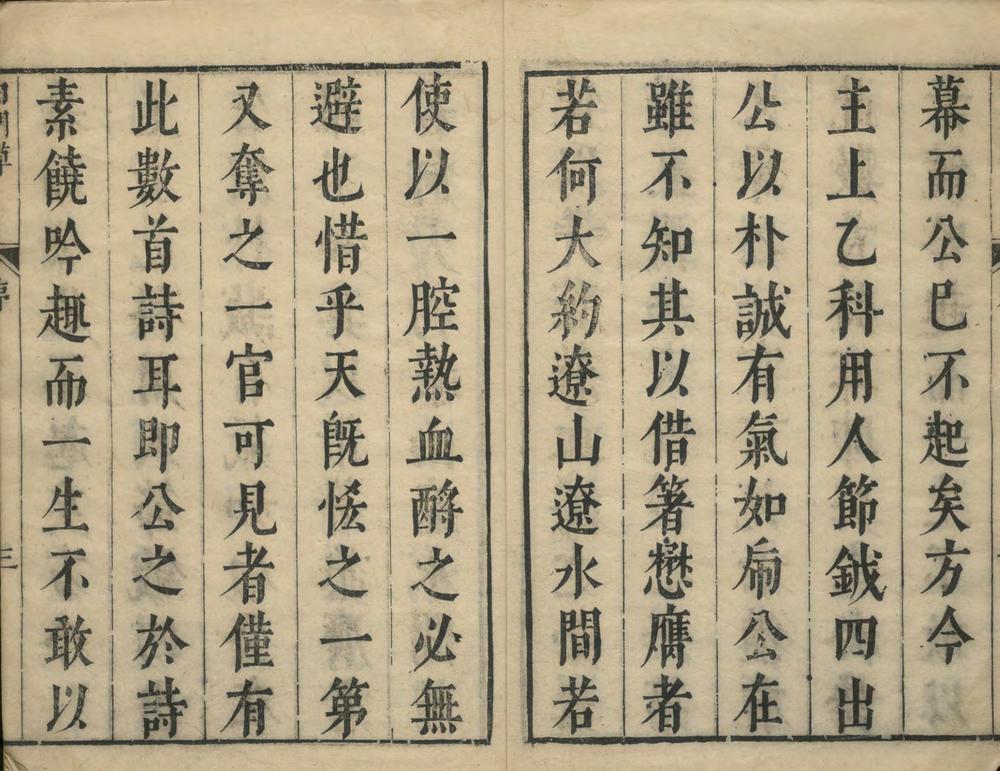 幕而公已不起矣方今
主上乙科用人節鉞四出
公以朴誠有氣如扄公在
雖不知其以借箸懋膺者
若何大約遼山遼水間若
使以一腔熱血酹之必無
避也惜乎天旣恡之一第
又奪之一官可見者僅有
此數首詩耳即公之於詩
素饒吟趣而一生不敢以
序
三